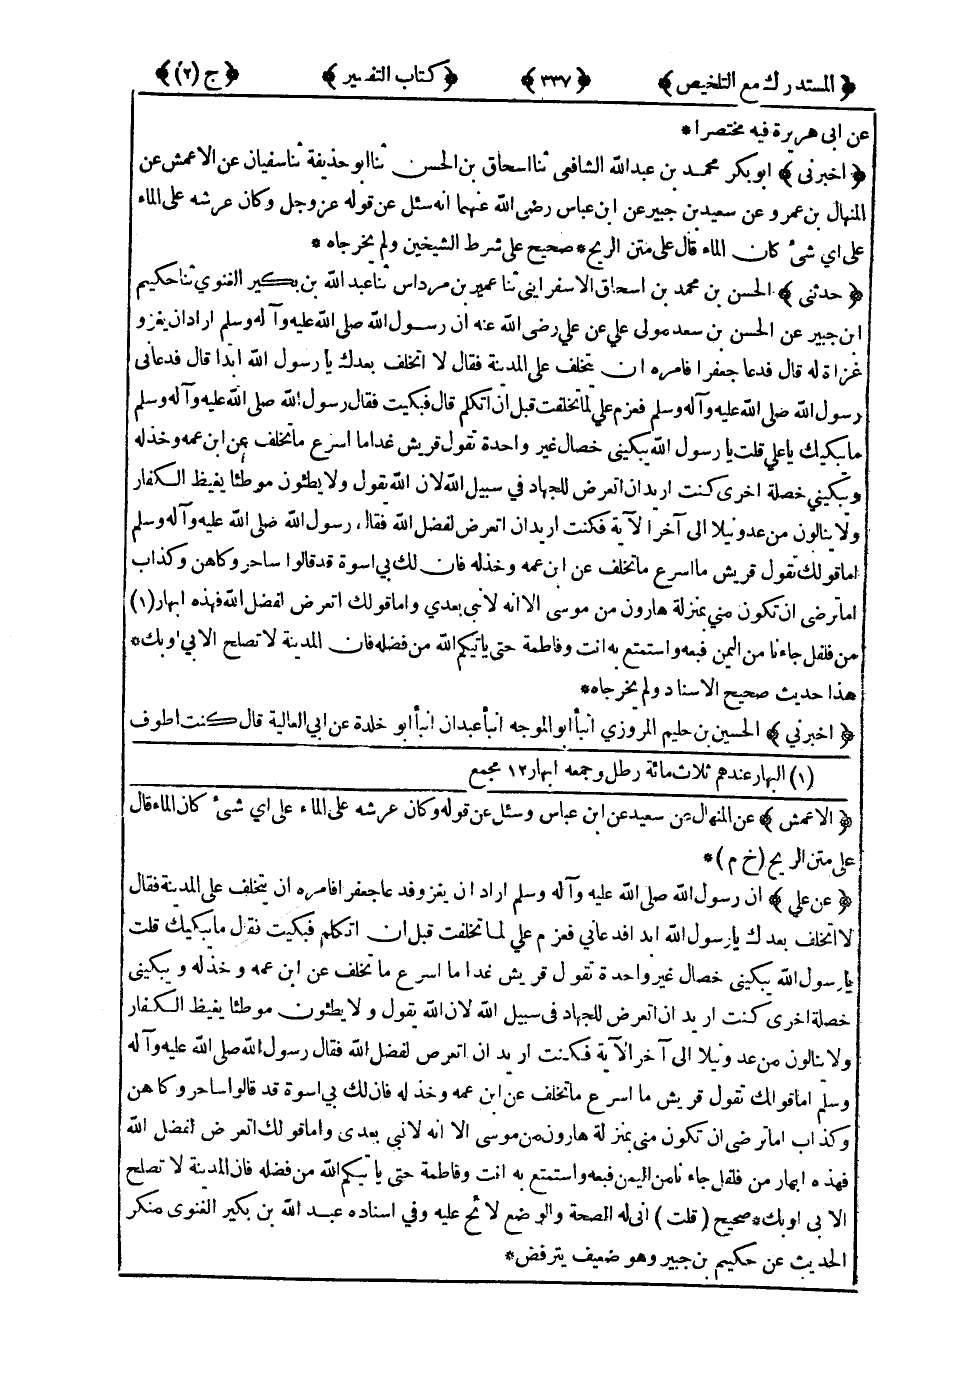 ﴿ المستدرك مع التلخيص ﴾ ﴿ ٣٣٧ ﴾ ﴿ كتاب التفسير ﴾ ﴿ ج (٢) ﴾
عن ابى هريرة فيه مختصرا*
﴿ اخبرنى ﴾ ابوبكر محمد بن عبدالله الشافعى ثنا اسحاق بن الحسن ثنا ابو حذيفة ثنا سفيان عن الاعمش عن
المنهال بن عمرو عن سعيد بن جبير عن ابن عباس رضى الله عنهما انه سئل عن قوله عز وجل وكان عرشه على الماء
على اي شئ كان الماء قال على متن الريح * صحيح على شرط الشيخين ولم يخرجاه *
﴿ حدثنى ﴾ الحسن بن محمد بن اسحاق الاسفرايني ثنا عمير بن مرداس ثنا عبد الله بن بكير الغنوي ثنا حكيم
ابن جبير عن الحسن بن سعد مولى علي عن علي رضى الله عنه ان رسول الله صلى الله عليه وآله وسلم اراد ان يغزو
غزاة له قال فدعا جعفرا فامره ان يتخلف على المدينة فقال لا اتخلف بعدك يا رسول الله ابدا قال فدعانى
رسول الله صلى الله عليه وآله وسلم فعزم علي لما تخلفت قبل ان اتكلم قال فبكيت فقال رسول الله صلى الله عليه وآله وسلم
ما يبكيك يا علي قلت يا رسول الله يبكيني خصال غير واحدة تقول قريش غدا ما اسرع ما تخلف عن ابن عمه وخذله
ويبكيني خصلة اخرى كنت اريد ان اتعرض للجهاد في سبيل الله لان الله يقول ولا يطئون موطئا يغيظ الكفار
ولا ينالون من عدو نيلا الى آخر الآية فكنت اريد ان اتعرض لفضل الله فقال رسول الله صلى الله عليه وآله وسلم
اما قولك تقول قريش ما اسرع ما تخلف عن ابن عمه وخذله فان لك بي اسوة قد قالوا ساحر وكاهن وكذاب
اما ترضى ان تكون مني بمنزلة هارون من موسى الا انه لا نبي بعدي واما قولك اتعرض لفضل الله فهذه ابهار (١)
من فلفل جاءنا من اليمن فبعه واستمتع به انت وفاطمة حتى ياتيكم الله من فضله فان المدينة لا تصلح الا بي او بك*
هذا حديث صحيح الاسناد ولم يخرجاه*
﴿ اخبرني ﴾ الحسين بن حليم المروزي انبأ ابو الموجه انبأ عبدان انبأ ابو خلدة عن ابي العالية قال كنت اطوف
(١) البهار عندهم ثلاث مائة رطل وجمعه ابهار ١٢ مجمع
﴿ الاعمش ﴾ عن المنهال عن سعيد عن ابن عباس وسئل عن قوله وكان عرشه على الماء على اي شئ كان الماء قال
على متن الريح (خ م)*
﴿ عن علي ﴾ ان رسول الله صلى الله عليه وآله وسلم اراد ان يغزو فدعا جعفرا فامره ان يتخلف على المدينة فقال
لا اتخلف بعدك يا رسول الله ابدا فدعاني فعزم علي لما تخلفت قبل ان اتكلم فبكيت فقال ما يبكيك قلت
يا رسول الله يبكيني خصال غير واحدة تقول قريش غدا ما اسرع ما تخلف عن ابن عمه وخذله ويبكينى
خصلة اخرى كنت اريد ان اتعرض للجهاد فى سبيل الله لان الله يقول ولا يطئون موطئا يغيظ الكفار
ولا ينالون من عدو نيلا الى آخر الآية فكنت اريد ان اتعرض لفضل الله فقال رسول الله صلى الله عليه وآله
وسلم اما قولك تقول قريش ما اسرع ما تخلف عن ابن عمه وخذله فان لك بي اسوة قد قالوا ساحر وكاهن
وكذاب اما ترضى ان تكون منى بمنزلة هارون من موسى الا انه لا نبي بعدى واما قولك اتعرض لفضل الله
فهذه ابهار من فلفل جاءنا من اليمن فبعه واستمتع به انت وفاطمة حتى ياتيكم الله من فضله فان المدينة لا تصلح
الا بى او بك * صحيح ( قلت ) انى له الصحة والوضع لائح عليه وفي اسناده عبد الله بن بكير الغنوى منكر
الحديث عن حكيم بن جبير وهو ضعيف يترفض*